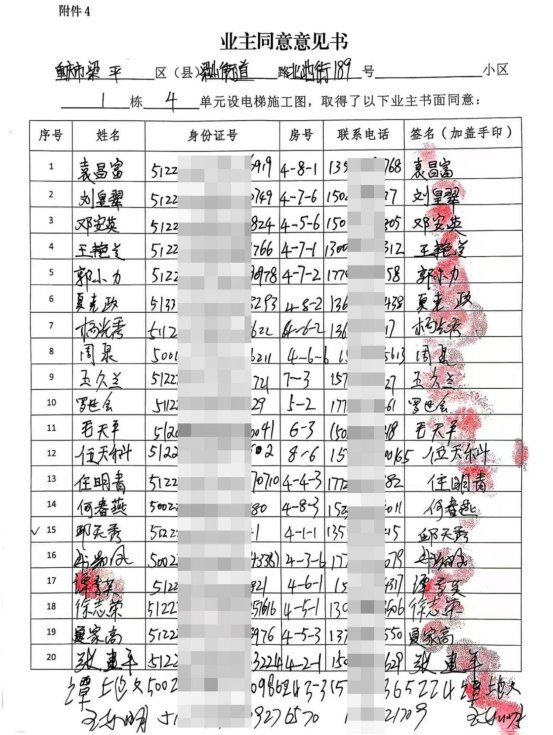 附件4
业主同意意见书
重庆市梁平 区(县) 梁山街道 路 北池街189 号 小区
1 栋 4 单元设电梯施工图,取得了以下业主书面同意:
序号 姓名 身份证号 房号 联系电话 签名(加盖手印)
1 袁昌富 5122 6919 4-8-1 135 768 袁昌富
2 刘皇翠 5122 0749 4-7-6 150 7 刘皇翠
3 邓安英 5122 824 4-5-6 150 305 邓安英
4 王艳兰 5122 766 4-7-1 1300 312 王艳兰
5 郭小力 5122 0978 4-7-2 177 58 郭小力
6 夏克政 5133 3293 4-8-2 136 438 夏克政
7 杨光秀 5112 4-6-2 136 17 杨光秀
8 周泉 5001 6211 4-6-6 5613 周泉
9 王久兰 5122 721 7-3 157 27 王久兰
10 罗世会 5112 29 5-2 177 61 罗世会
11 毛天平 512 0041 6-3 150 8 毛天平
12 任天科 5122 502 8-6 15 00165 任天科
13 任明书 5122 70710 4-4-3 177 82 任明书
14 何春燕 5002 80 4-8-3 152 011 何春燕
15 邱天秀 5122 1 4-1-1 135 15 邱天秀
16 5002 4-3-6 177 079
17 5122 921 4-6-1 15 937
18 徐志荣 5122 51616 4-5-1 130 506 徐志荣
19 夏家高 5122 6976 4-5-3 137 550 夏家高
20 张建平 5122 3224 4-2-1 150 629 张建平
谭地 5002 3-3 15 365224 谭地